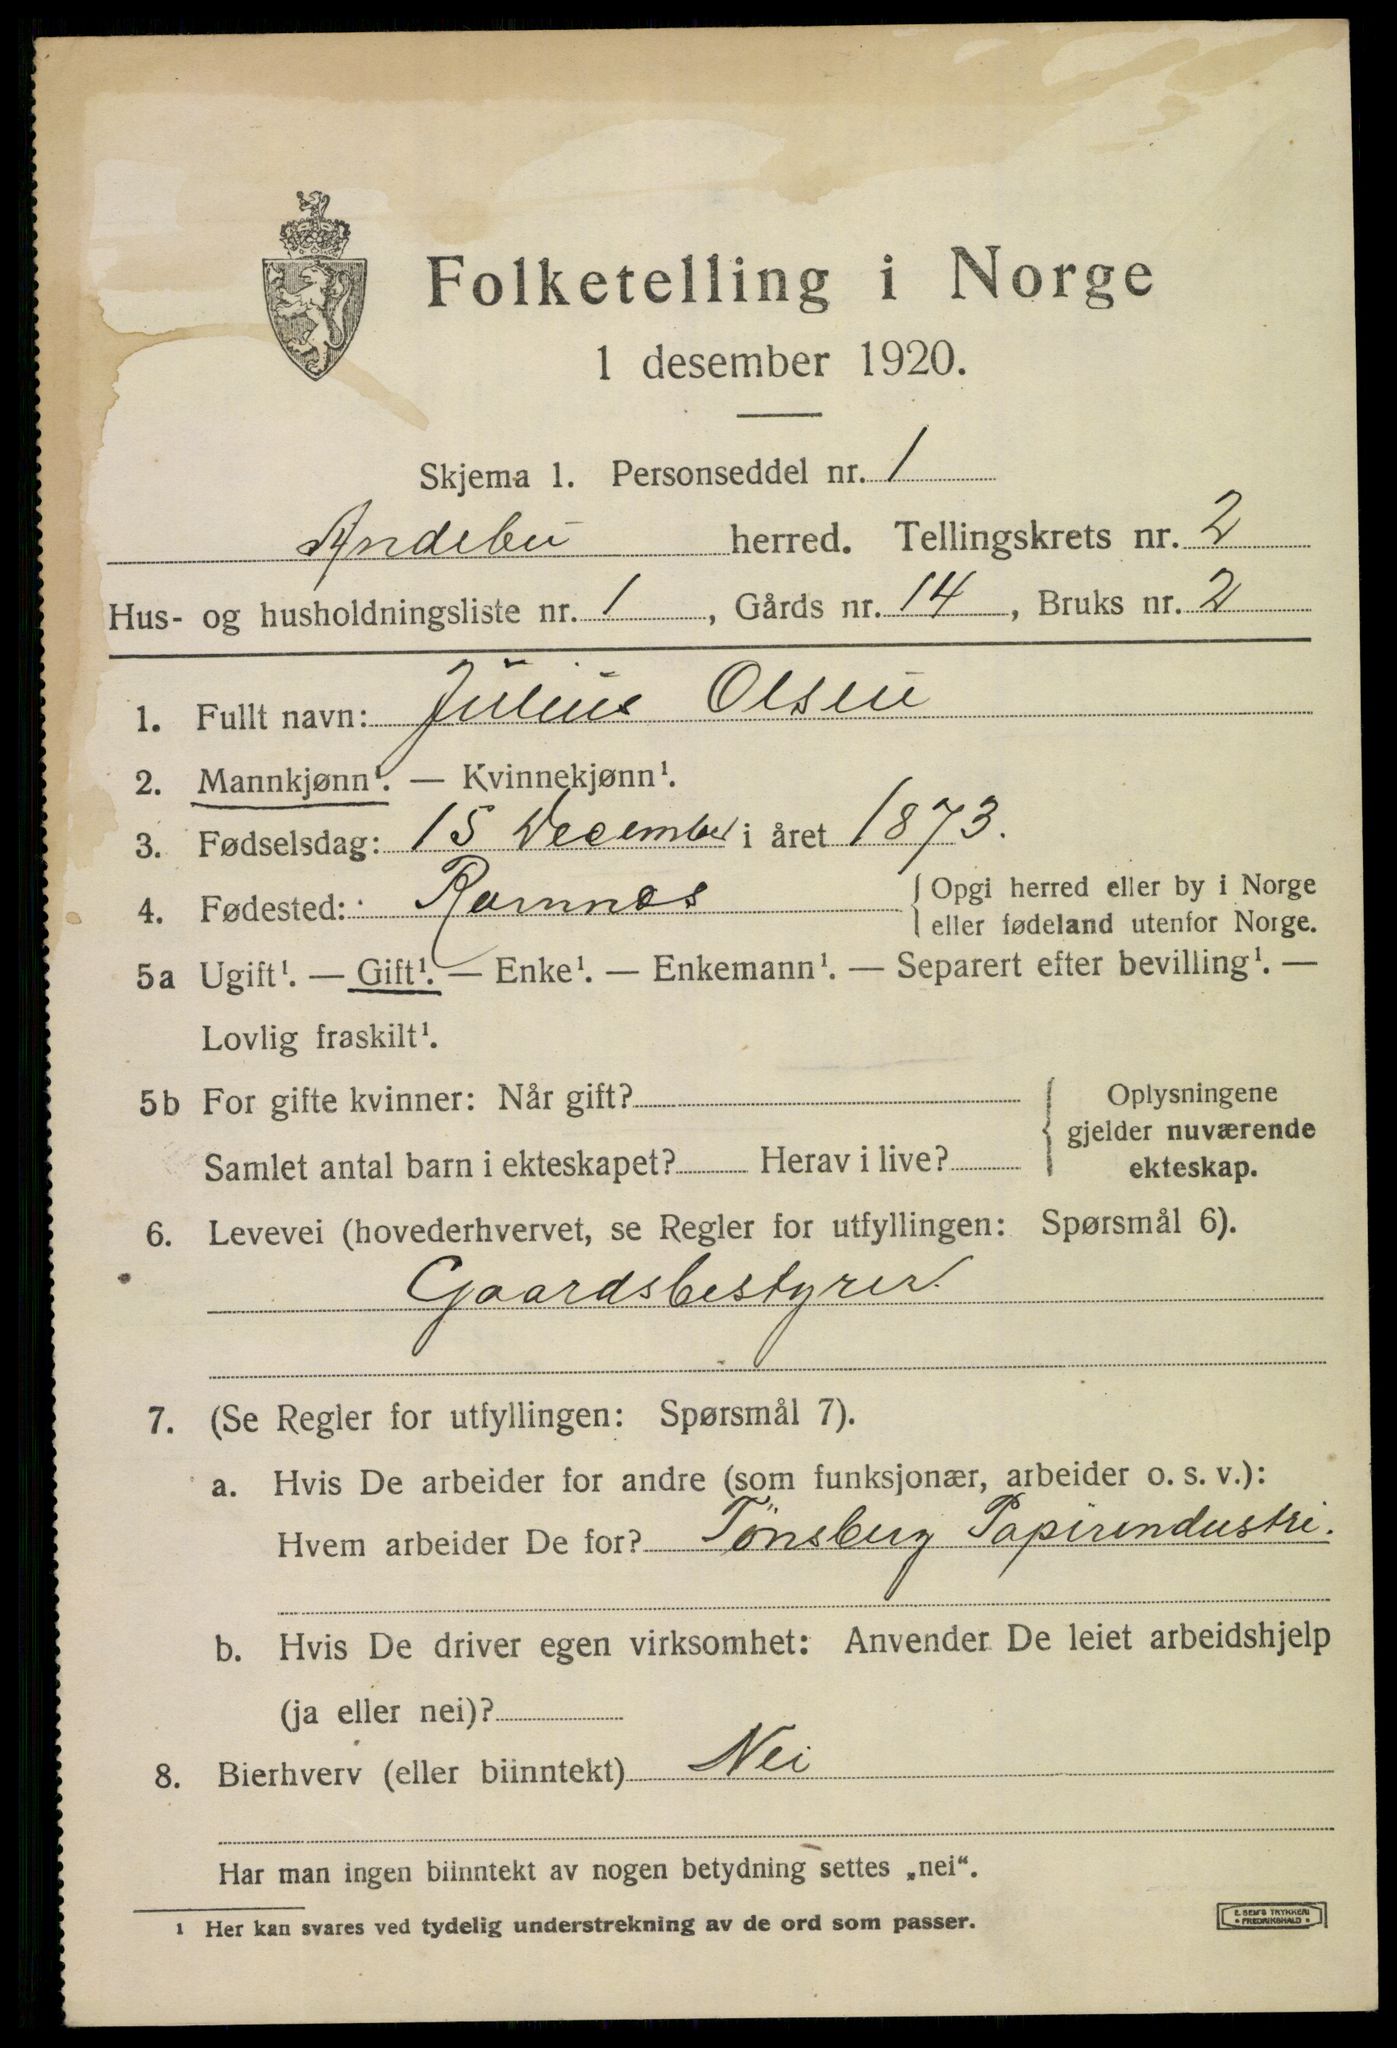 Folketelling i Norge
1 desember 1920.
Skjema 1. Personseddel nr. 1
Andebu herred. Tellingskrets nr. 2
Hus- og husholdningsliste nr. 1, Gårds nr. 14, Bruks nr. 2
1. Fullt navn: Julius Olsen
2. Mannkjønn¹. — Kvinnekjønn¹.
3. Fødselsdag: 15 December i året 1873.
4. Fødested: Ramnes { Opgi herred eller by i Norge
eller fødeland utenfor Norge.
5a Ugift¹. — Gift¹. — Enke¹. — Enkemann¹. — Separert efter bevilling¹. —
Lovlig fraskilt¹.
5b For gifte kvinner: Når gift?
Samlet antal barn i ekteskapet? Herav i live?
{ Oplysningene
gjelder nuværende
ekteskap.
6. Levevei (hovederhvervet, se Regler for utfyllingen: Spørsmål 6).
Gaardsbestyrer.
7. (Se Regler for utfyllingen: Spørsmål 7).
a. Hvis De arbeider for andre (som funksjonær, arbeider o. s. v.):
Hvem arbeider De for? Tönsberg Papirindustri.
b. Hvis De driver egen virksomhet: Anvender De leiet arbeidshjelp
(ja eller nei)?
8. Bierhverv (eller biinntekt) Nei
Har man ingen biinntekt av nogen betydning settes „nei“.
¹ Her kan svares ved tydelig understrekning av de ord som passer.
E. SEM'S TRYKKERI
• FREDRIKSHALD •